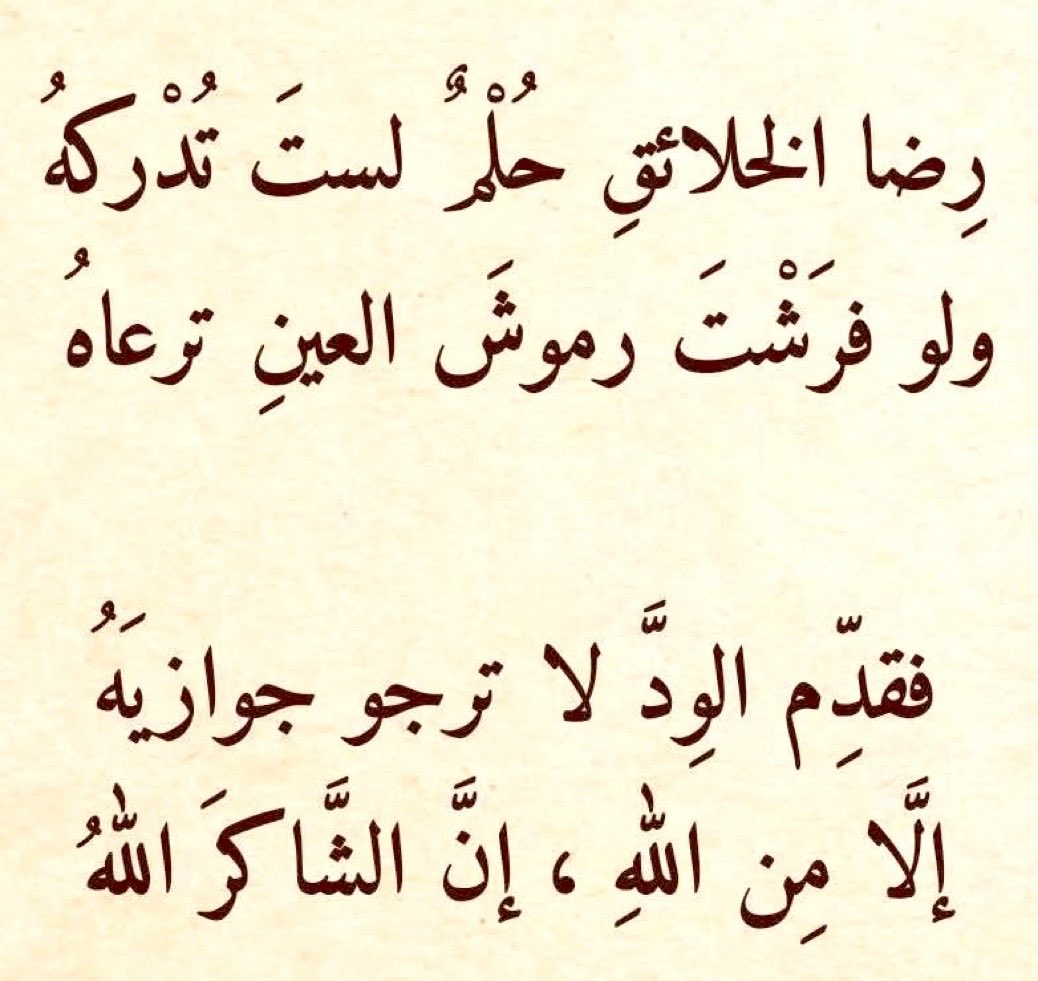 رِضا الخلائقِ حُلْمٌ لستَ تُدْركهُ
ولو فرَشْتَ رموشَ العينِ ترعاهُ
فقدِّم الوِدَّ لا ترجو جوازيَهُ
إلَّا مِن اللهِ ، إنَّ الشَّاكرَ اللهُ